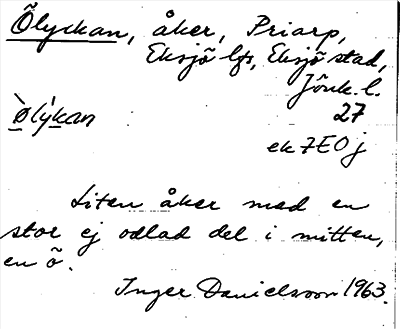 Ölyckan, åker, Priarp,
Eksjö lfs, Eksjö stad,
Jönk. l.
27
ö̀lýkan
ek 7E0j
Liten åker med en
stor ej odlad del i mitten,
en ö.
Inger Danielsson 1963.